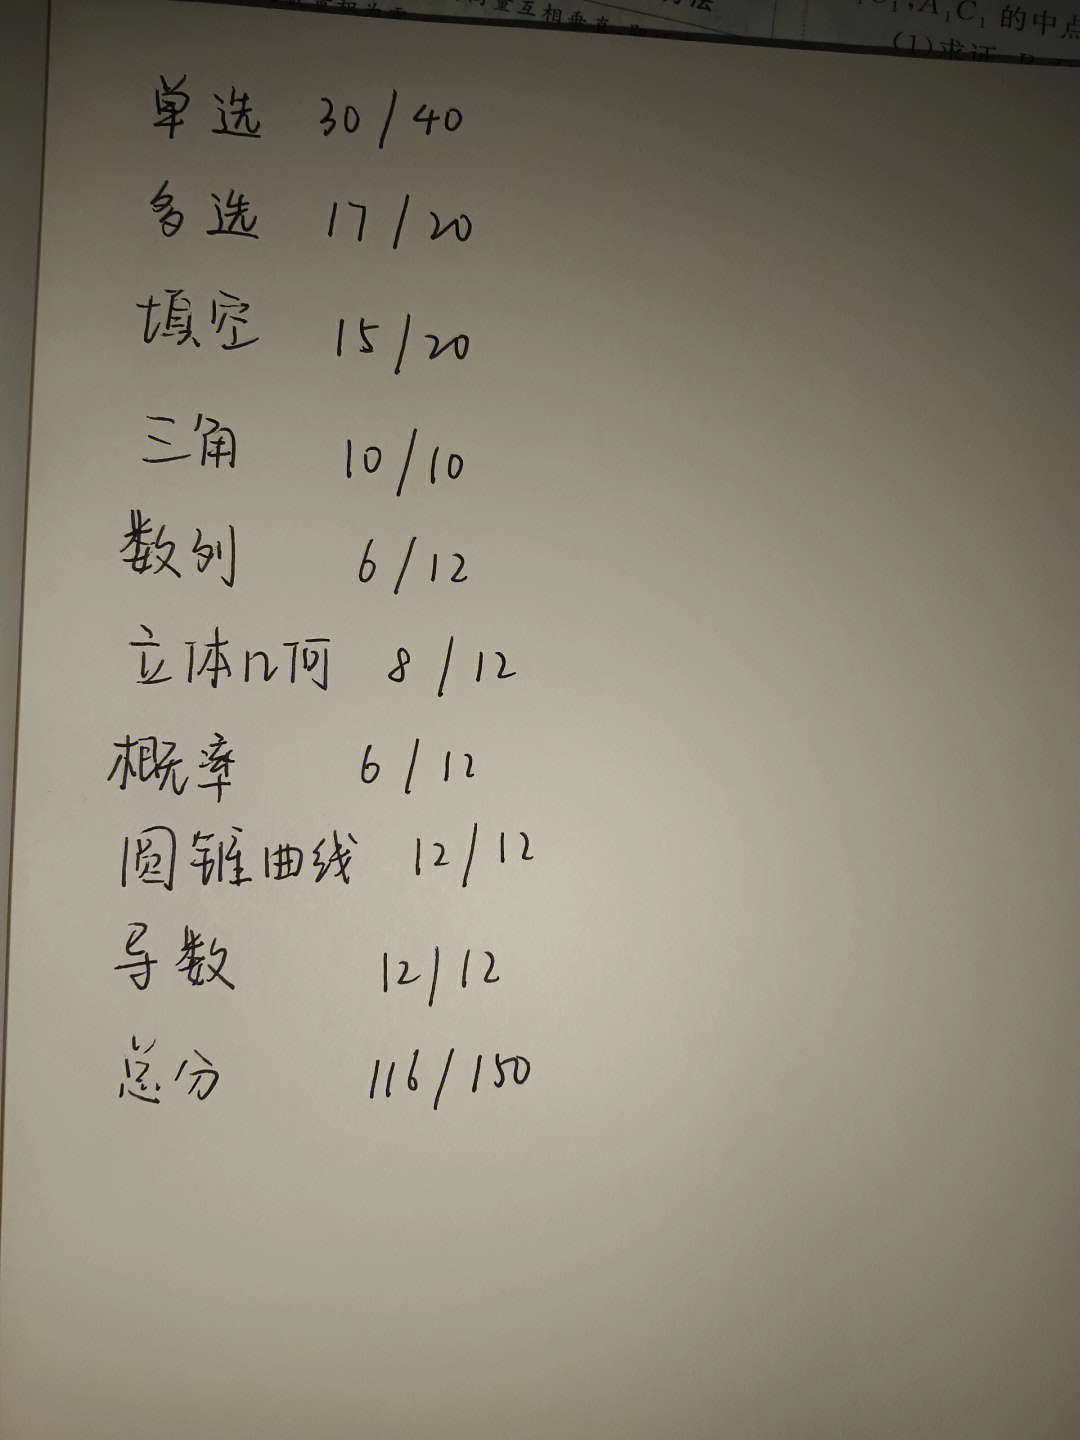 互相垂直
A₁C₁ 的中点
(1)求证
单选 30/40
多选 17/20
填空 15/20
三角 10/10
数列 6/12
立体几何 8/12
概率 6/12
圆锥曲线 12/12
导数 12/12
总分 116/150